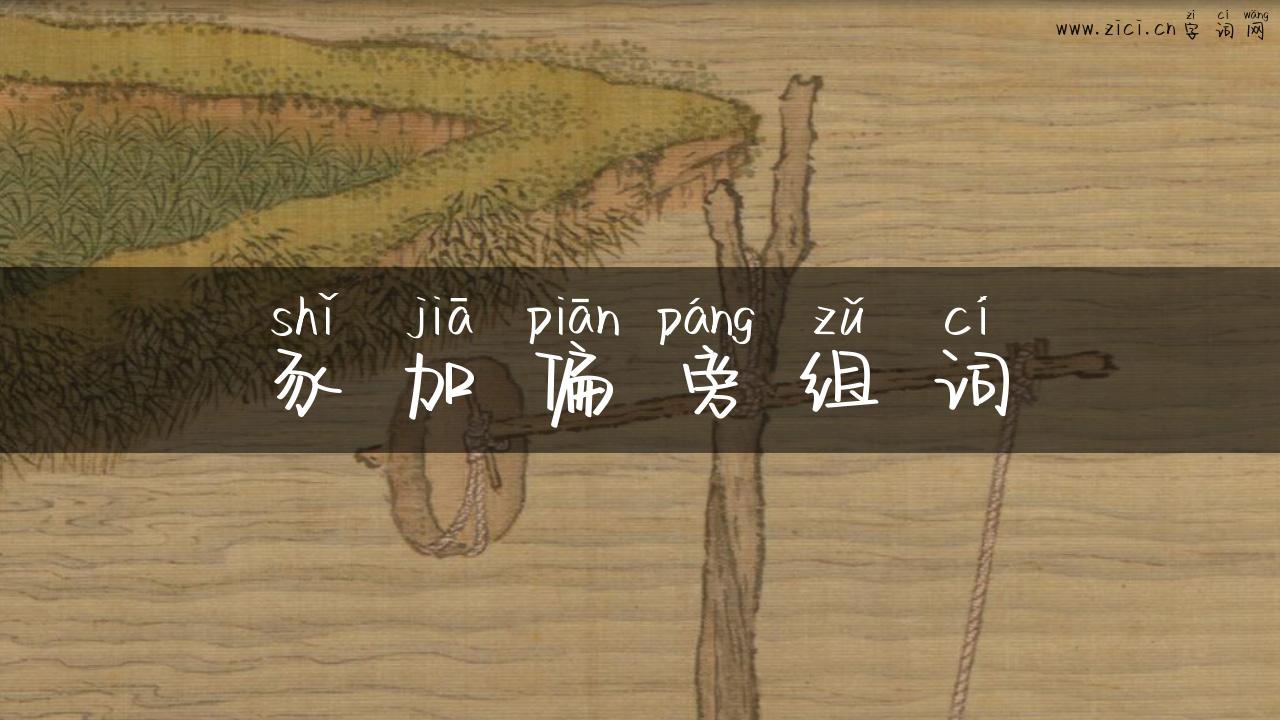 zì cí wǎng
www.zici.cn字词网
shǐ jiā piān páng zǔ cí
豕加偏旁组词